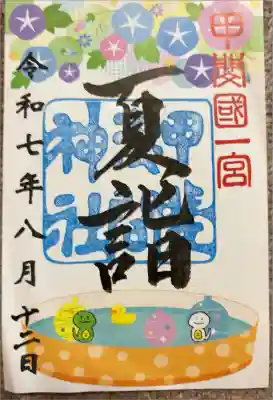 甲斐國一宮
夏詣
神社
令和七年八月十二日